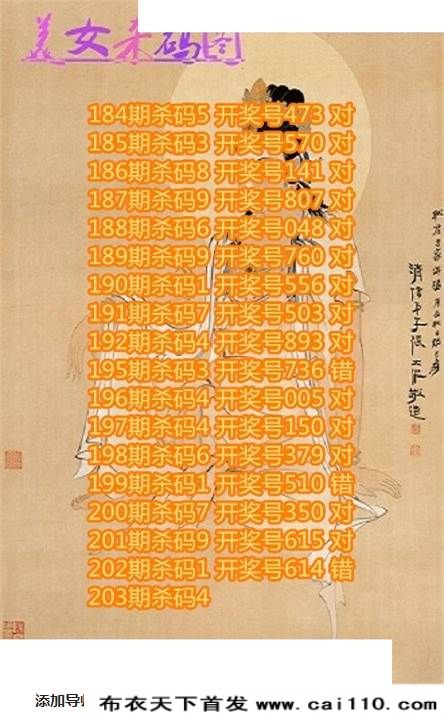 美女杀码图
184期杀码5 开奖号473 对
185期杀码3 开奖号570 对
186期杀码8 开奖号141 对
187期杀码9 开奖号807 对
188期杀码6 开奖号048 对
189期杀码9 开奖号760 对
190期杀码1 开奖号556 对
191期杀码7 开奖号503 对
192期杀码4 开奖号893 对
195期杀码3 开奖号736 错
196期杀码4 开奖号005 对
197期杀码4 开奖号150 对
198期杀码6 开奖号379 对
199期杀码1 开奖号510 错
200期杀码7 开奖号350 对
201期杀码9 开奖号615 对
202期杀码1 开奖号614 错
203期杀码4
添加导
布衣天下首发 www.cai110.com